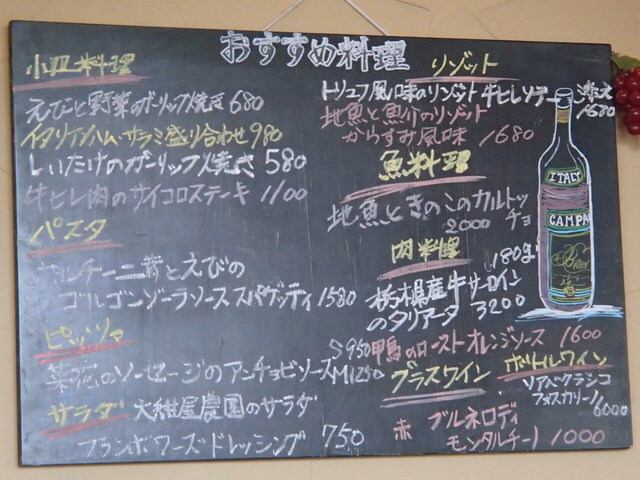 おすすめ料理
小皿料理
えびと野菜のガーリック焼き 680
イタリアンハム・サラミ盛り合わせ 980
しいたけのガーリック焼き 580
牛ヒレ肉のサイコロステーキ 1100
パスタ
ポルチーニ茸とえびの
ゴルゴンゾーラソーススパゲッティ 1580
ピッツァ
菜花のソーセージのアンチョビソース S950 M1250
サラダ 大紺屋農園のサラダ
フランボワーズドレッシング 750
リゾット
トリュフ風味のリゾット牛ヒレソテー添え 1680
地魚と魚介のリゾット
からすみ風味 1680
魚料理
地魚ときのこのカルトッチョ
2000
肉料理 180g
栃木県産牛サーロイン
のタリアータ 3200
鴨のローストオレンジソース 1600
グラスワイン
赤 ブルネロディ
モンタルチーノ 1000
ボトルワイン
ソアベクラシコ
フォスカリーノ
6000
ITALY
CAMPA